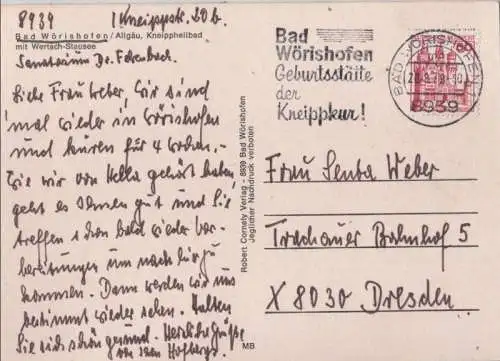 8939 1 Kneippstr. 20 b.
Bad Wörishofen/Allgäu, Kneippheilbad
mit Wertach-Stausee
Sanatorium Dr.
Liebe Frau Weber, wir sind
mal wieder in Wörishofen
und kuren für 4 Wochen.
Wie wir von Hella gehört haben,
geht es Ihnen gut und Sie
treffen schon bald wieder Vor-
bereitungen um nach hier zu
kommen. Dann werden wir uns
bestimmt wieder sehen. Halten
Sie sich schön gesund. Herzliche Grüße
von Ihren
Robert Cornely Verlag - 8939 Bad Wörishofen
Jeglicher Nachdruck verboten
MB
Bad
Wörishofen
Geburtsstätte
der
Kneippkur!
BAD WÖRISHOFEN
8939
60
Frau Senta Weber
Trachauer Bahnhof 5
X 8030 Dresden